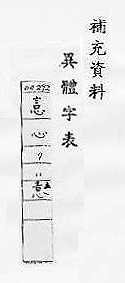 補充資料
異體字表
心
9
意